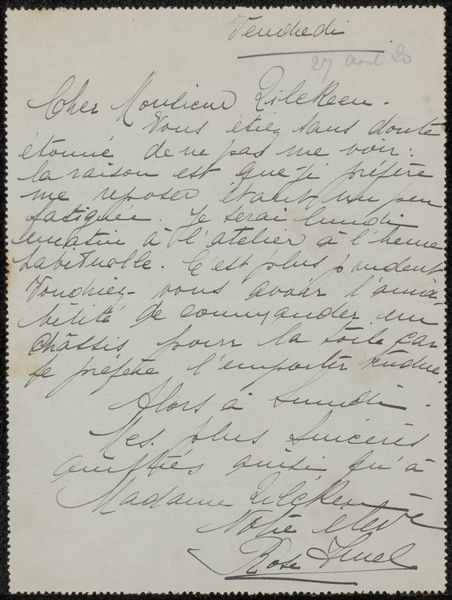 Vendredi
27 août 20
Cher Monsieur Zilcken.
Vous étiez sans doute
étonné de ne pas me voir:
la raison est que j'ai préféré
me reposer étant un peu
fatiguée. Je serai lundi
matin à l'atelier à l'heure
habituelle. C'est plus prudent
Voudriez-vous avoir l'ama-
bilité de commander un
châssis pour la toile car
je préfère l'emporter tendue.
Alors à lundi.
Mes plus sincères
amitiés ainsi qu'à
Madame Zilcken
Votre élève
Rose